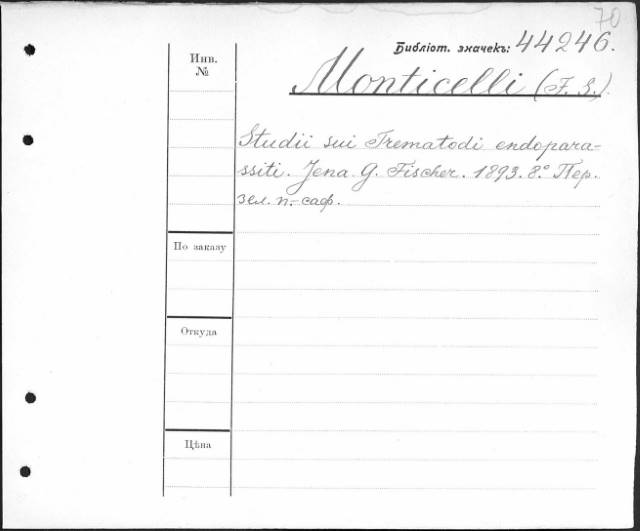 70
Библіот. значекъ: 44246.
Инв.
№
Monticelli (F. S.).
Studii sui Trematodi endopara-
ssiti. Jena. G. Fischer. 1893. 8.° Пер.
зел. п.-саф.
По заказу
Откуда
Цѣна